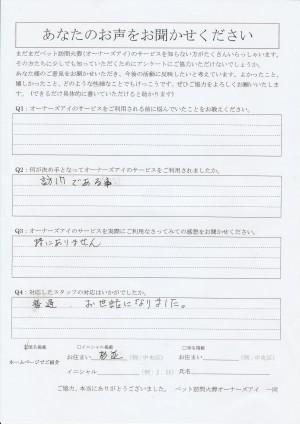 あなたのお声をお聞かせください
まだまだペット訪問火葬(オーナーズアイ)のサービスを知らない方がたくさんいらっしゃいます。
その方たちに少しでも知っていただくためにアンケートにご協力いただけないでしょうか。
あなた様のご意見をお聞かせいただき、今後の活動に反映したいと考えています。よかったこと、
嬉しかったこと、どのような些細なことでもけっこうです。ぜひご協力をよろしくお願いいたしま
す。(できるだけ具体的に書いていただけると助かります)
Q1:オーナーズアイのサービスをご利用される前に悩んでいたことをお教えください。
Q2:何が決め手となってオーナーズアイのサービスをご利用されましたか。
訪問である事
Q3:オーナーズアイのサービスを実際にご利用なさってみての感想をお聞かせください。
特にありません
Q4:対応したスタッフの対応はいかがでしたか。
普通、お世話になりました。
実名掲載 □イニシャル掲載 □匿名掲載
ホームページでご紹介
お住まい (例:中央区) お住まい (例:中央区)
イニシャル 氏名
ご協力、本当にありがとうございました。 ペット訪問火葬オーナーズアイ 一同